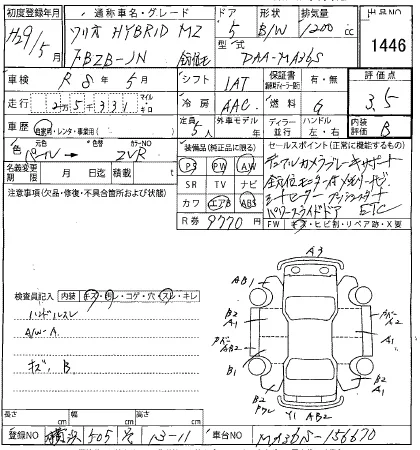 初度登録年月 通称車名・グレード ドア 形状 排気量 出品NO
H29/5月 ソリオ HYBRID MZ 5 B/W 1200cc 1446
FBZB-JN 全方位 型式 DAA-MA36S
車検 R8年5月 シフト IAT 保証書 有・無 評価点
走行 2万5=331 マイル キロ 冷房 AAC 燃料 G 3.5
車歴 自家用・レンタ・事業用( ) 定員 5人 外車モデル 年 ディーラー 並行 ハンドル 左・右 内装評価 B
色 元色 パール 色替 カラーNO ZVR 装備品(純正品に限る) セールスポイント(正常に機能するもの)
PS PW AW デュアルカメラブレーキサポート
名義変更期限 月 日迄 積載量 t SR TV ナビ 全方位モニター付メモリーナビ
注意事項(欠品・修復・不具合箇所および状態) カワ エアB ABS シートヒーター
パワースライドドア ETC
R券 9770円 FW キズ・ヒビ割・リペア跡・X要
A3
AB1
検査員記入 内装 キズ・汚・コゲ・穴 スレ・キレ
ハンドルスレ
A/W-A
キズ、B
B2 A1
A1
AB2
B1
A1
B2
B2
Y1 AB2
長さ cm 幅 cm 高さ cm
登録NO 横浜 505 そ 13-11 車台NO MA36S-156670